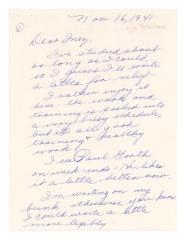 Nov 16, 1941
Dear Inez,
I've studied about
as long as I could
so I guess I'll write
a letter for relief.
I rather enjoy it
here. the work and
training is packed into
a very busy schedule,
but it's all good
training & healthy
work.
I see Paul Gooth
on week ends. He likes
it a little better now.
I'm writing on my
bunk otherwise you know
I could write a little
more legibly.